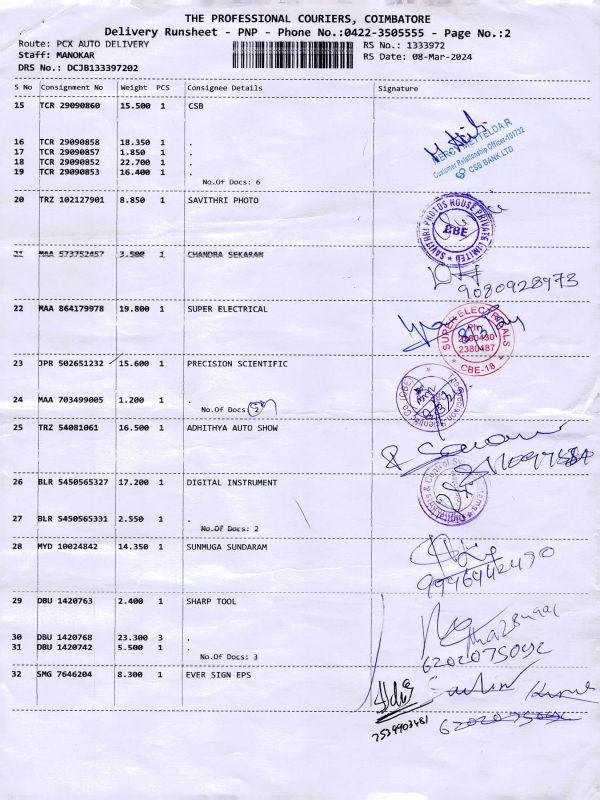 THE PROFESSIONAL COURIERS, COIMBATORE
Delivery Runsheet - PNP - Phone No.:0422-3505555 - Page No.:2
Route: PCX AUTO DELIVERY RS No.: 1333972
Staff: MANOKAR RS Date: 08-Mar-2024
DRS No.: DCJB133397202
S No Consignment No Weight PCS Consignee Details Signature
15 TCR 29090860 15.500 1 CSB
16 TCR 29090858 18.350 1 .
17 TCR 29090857 1.850 1 .
18 TCR 29090852 22.700 1 .
19 TCR 29090853 16.400 1 .
Customer Relationship Officer-101732
CSB BANK LTD
No.Of Docs: 6
20 TRZ 102127901 8.850 1 SAVITHRI PHOTO
SAVITHRI PHOTOS HOUSE PRIVATE LIMITED
CBE
21 MAA 573752457 3.500 1 CHANDRA SEKARAM
9080928973
22 MAA 864179978 19.800 1 SUPER ELECTRICAL
SUPER ELECTRICALS
Ph:
2380430
2380487
CBE-18
23 JPR 502651232 15.600 1 PRECISION SCIENTIFIC
24 MAA 703499005 1.200 1 .
No.Of Docs: 2
25 TRZ 54081061 16.500 1 ADHITHYA AUTO SHOW
26 BLR 5450565327 17.200 1 DIGITAL INSTRUMENT
27 BLR 5450565331 2.550 1 .
No.Of Docs: 2
28 MYD 10024842 14.350 1 SUNMUGA SUNDARAM
9946442490
29 DBU 1420763 2.400 1 SHARP TOOL
30 DBU 1420768 23.300 3 .
31 DBU 1420742 5.500 1 .
No.Of Docs: 3
32 SMG 7646204 8.300 1 EVER SIGN EPS
7539903481